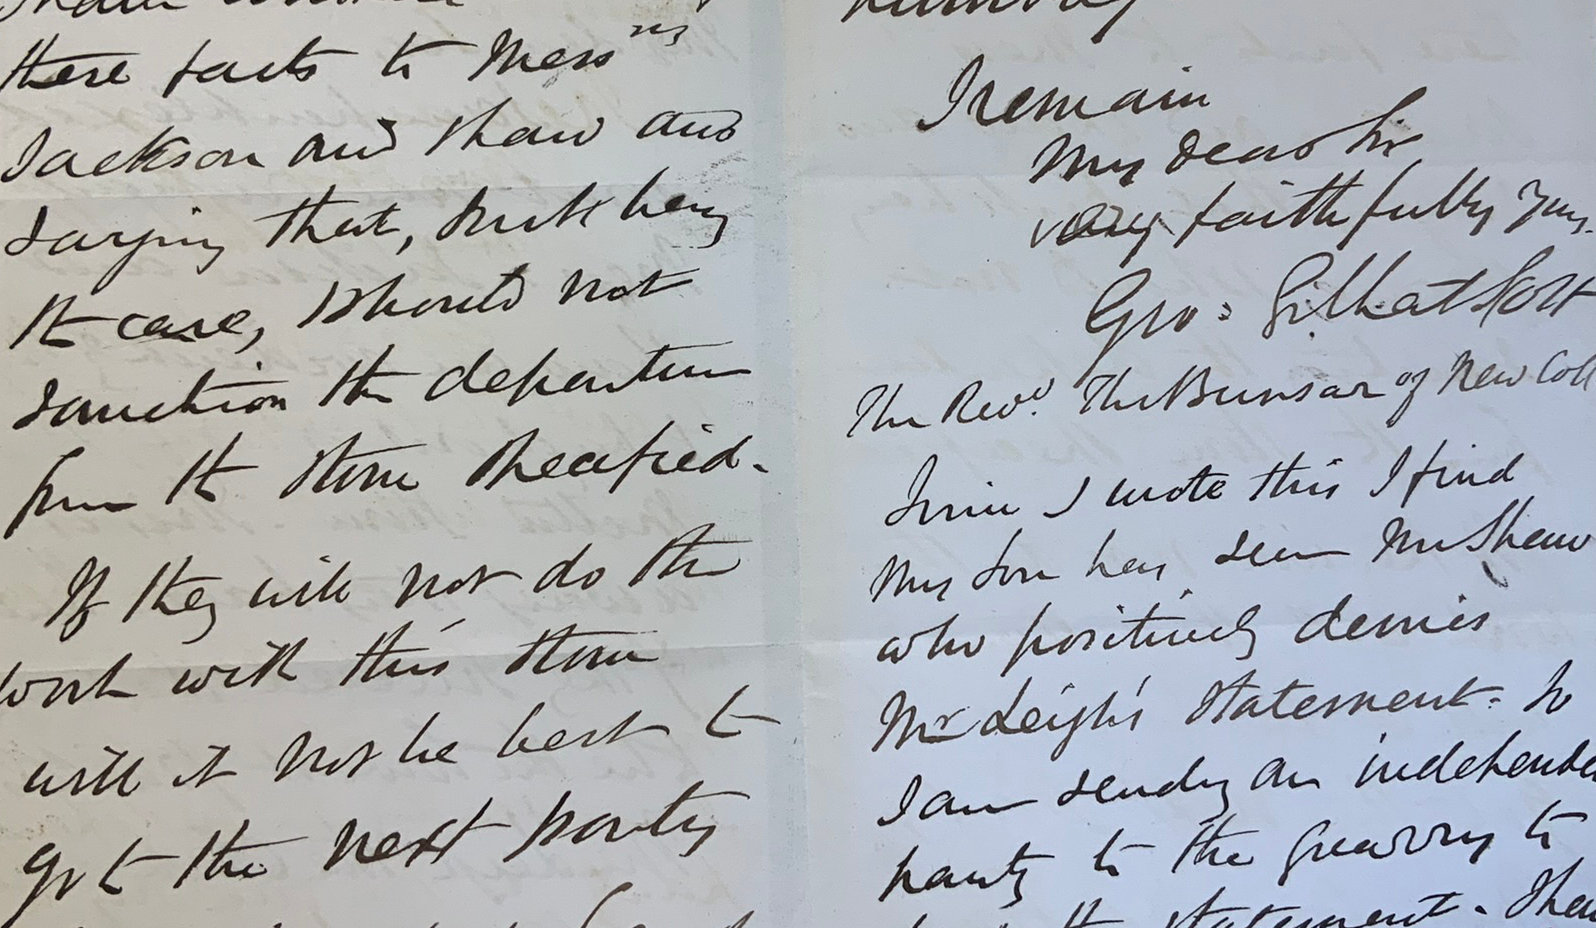 these facts to Mess^rs
Jackson and Shaw and
saying that, such being
the case, I should not
sanction the departure
from the stone specified.
If they will not do the
work with this stone
will it not be best to
go to the next party
I remain
My dear Sir
very faithfully yrs.
Geo: Gilbert Scott
The Rev^d. The Bursar of New Coll
Since I wrote this I find
my son has seen Mr Shaw
who positively denies
Mr Leigh's statement. So
I am sending an independe
party to the Quarry to
the statement. I